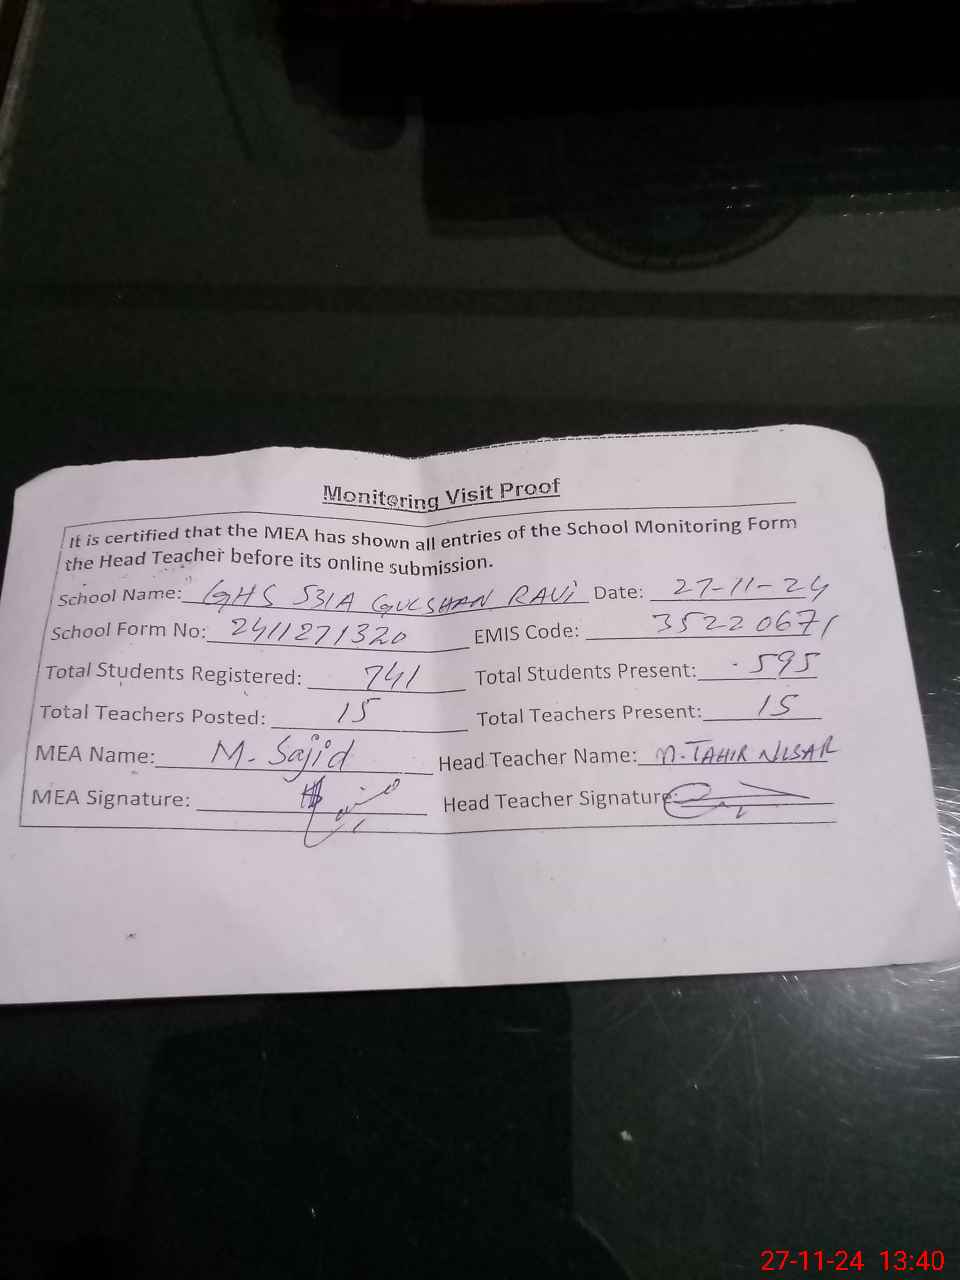 Monitoring Visit Proof
It is certified that the MEA has shown all entries of the School Monitoring Form
the Head Teacher before its online submission.
School Name: GHS 531A GULSHAN RAVi Date: 27-11-24
School Form No: 2411271320 EMIS Code: 35220671
Total Students Registered: 741 Total Students Present: 595
Total Teachers Posted: 15 Total Teachers Present: 15
MEA Name: M. Sajid Head Teacher Name: M. TAHIR NISAR
MEA Signature: Head Teacher Signature:
27-11-24 13:40